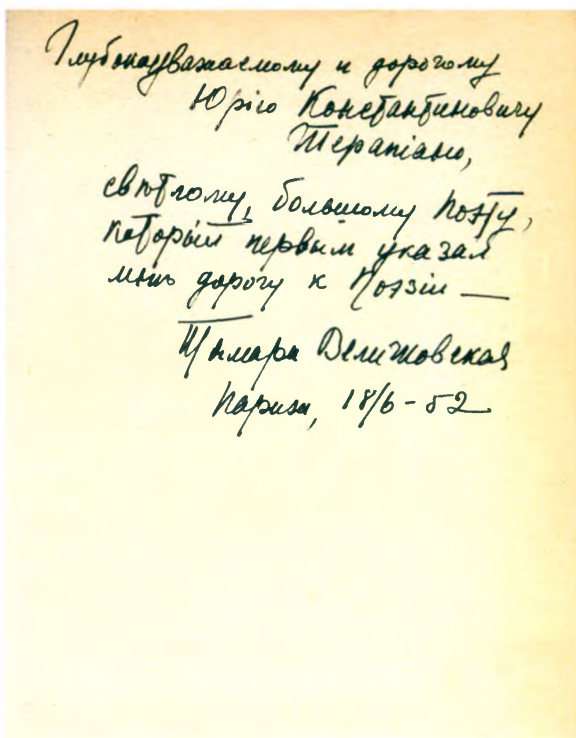 Глубокоуважаемому и дорогому
Юрію Константиновичу
Терапіано,
свѣтлому, большому Поэту,
который первым указал
мнѣ дорогу к Поэзіи —
Тамара Величковская
Париж, 18/6 - 52